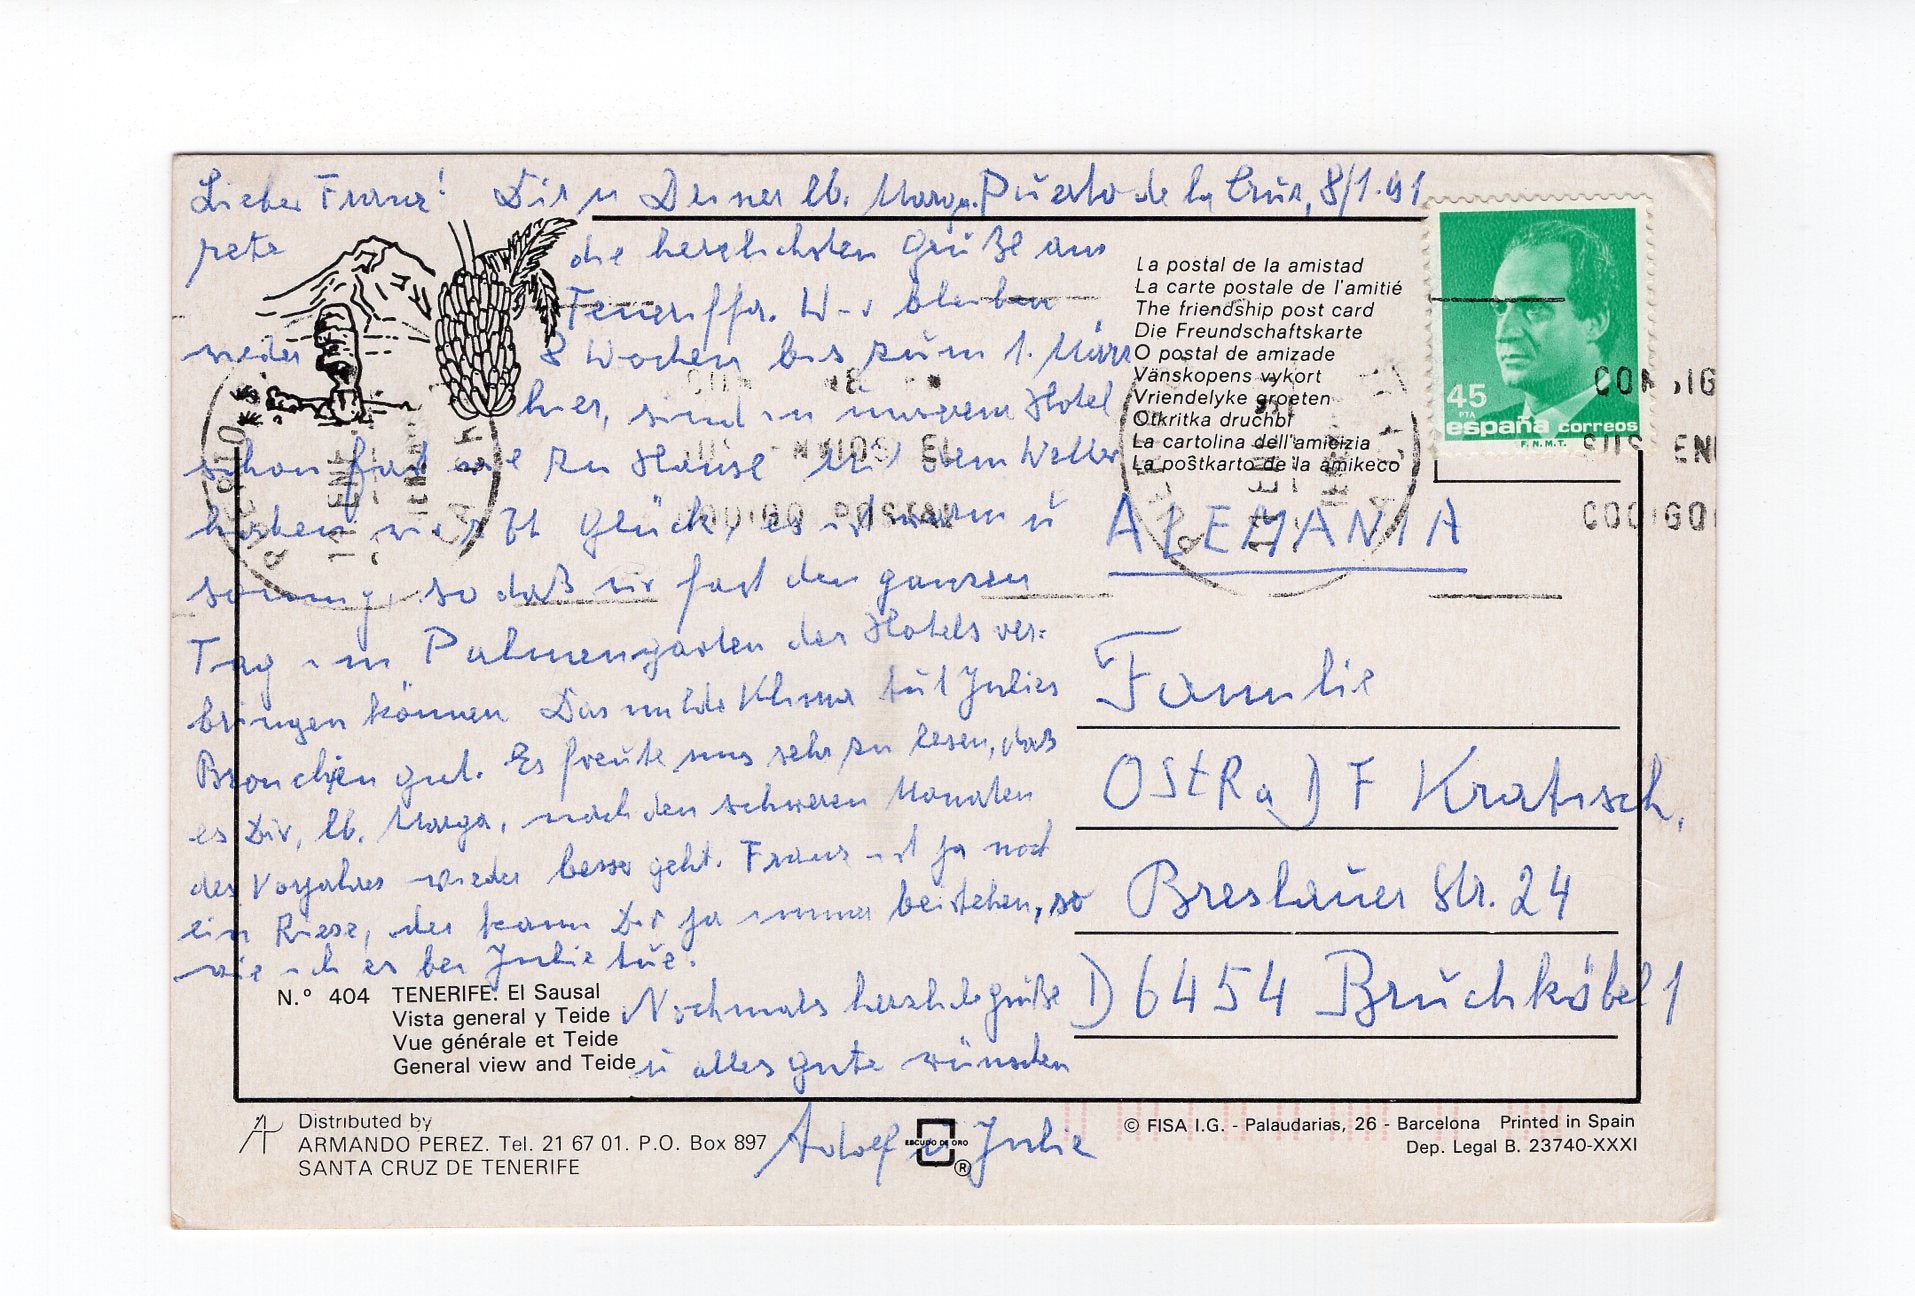 Lieber Franz! Dir u Deiner lb. Marga Puerto de la Cruz, 8/1.91
rete die herzlichsten Grüße aus
Teneriffa. Wir bleiben
wieder 8 Wochen bis zum 1. März
hier, sind in unserem Hotel
schon fast wie zu Hause. Mit dem Wetter
haben wir Glück, es ist warm u
sonnig, so daß wir fast den ganzen
Tag im Palmengarten des Hotels ver:
bringen können. Das milde Klima tut Julies
Bronchien gut. Es freute uns sehr zu lesen, daß
es Dir, lb. Marga, nach den schweren Monaten
des Vorjahres wieder besser geht. Franz ist ja noch
ein Riese, der kann Dir ja immer beistehen, so
wie ich es bei Julie tue.
Nochmals herzliche Grüße
u alles gute wünschen
Adolf u Julie
La postal de la amistad
La carte postale de l'amitié
The friendship post card
Die Freundschaftskarte
O postal de amizade
Vänskopens vykort
Vriendelyke groeten
Otkritka druchbi
La cartolina dell'amicizia
La poŝtkarto de la amikeco
45
PTA
españa correos
F.N.M.T.
ALEMANIA
Familie
OStRa D F Kratisch,
Breslauer Str. 24
D 6454 Bruchköbel 1
N.° 404 TENERIFE. El Sausal
Vista general y Teide
Vue générale et Teide
General view and Teide
Distributed by
ARMANDO PEREZ. Tel. 21 67 01. P.O. Box 897
SANTA CRUZ DE TENERIFE
ESCUDO DE ORO
®
© FISA I.G. - Palaudarias, 26 - Barcelona Printed in Spain
Dep. Legal B. 23740-XXXI